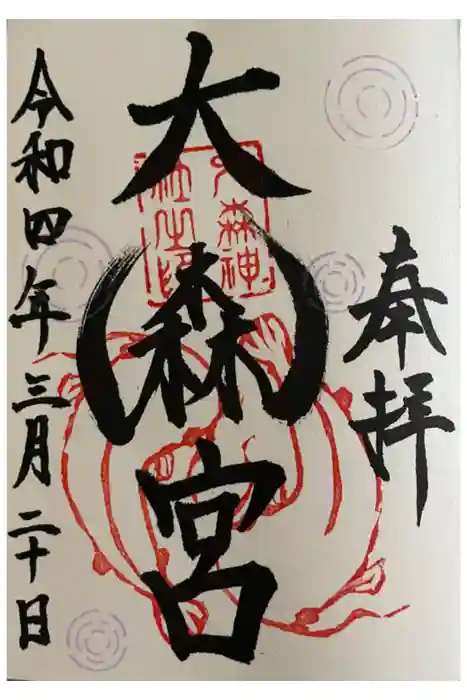 奉拝
大森宮
大森神社之印
令和四年三月二十日